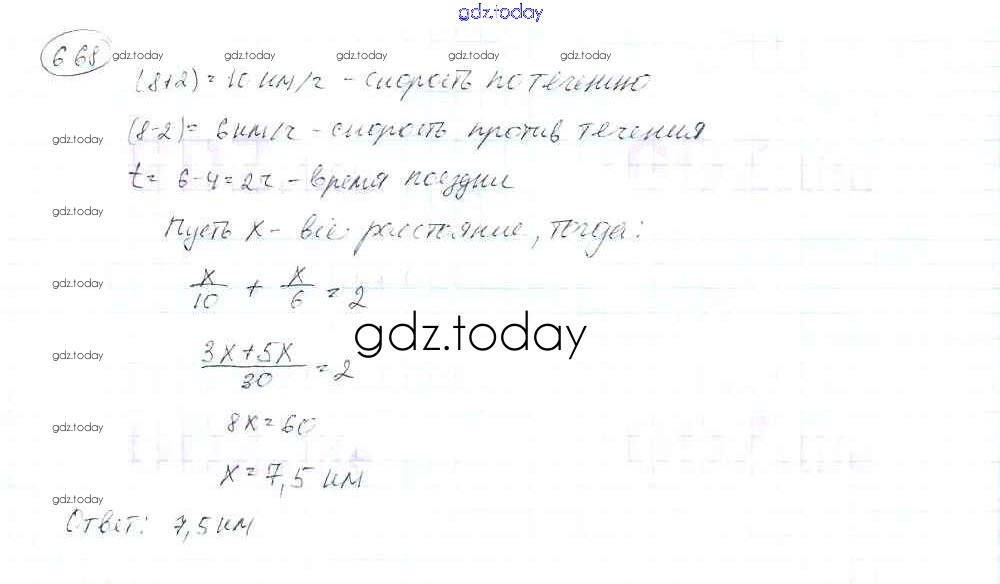 gdz.today
668 gdz.today gdz.today gdz.today gdz.today gdz.today
(8+2)= 10 км/ч - скорость по течению
gdz.today (8-2)= 6 км/ч - скорость против течения
t= 6-4=2ч - время поездки
gdz.today
Пусть x - всё расстояние, тогда:
gdz.today x/10 + x/6 = 2
gdz.today
gdz.today (3x+5x)/30 = 2
gdz.today 8x=60
x=7,5 км
gdz.today
Ответ: 7,5 км